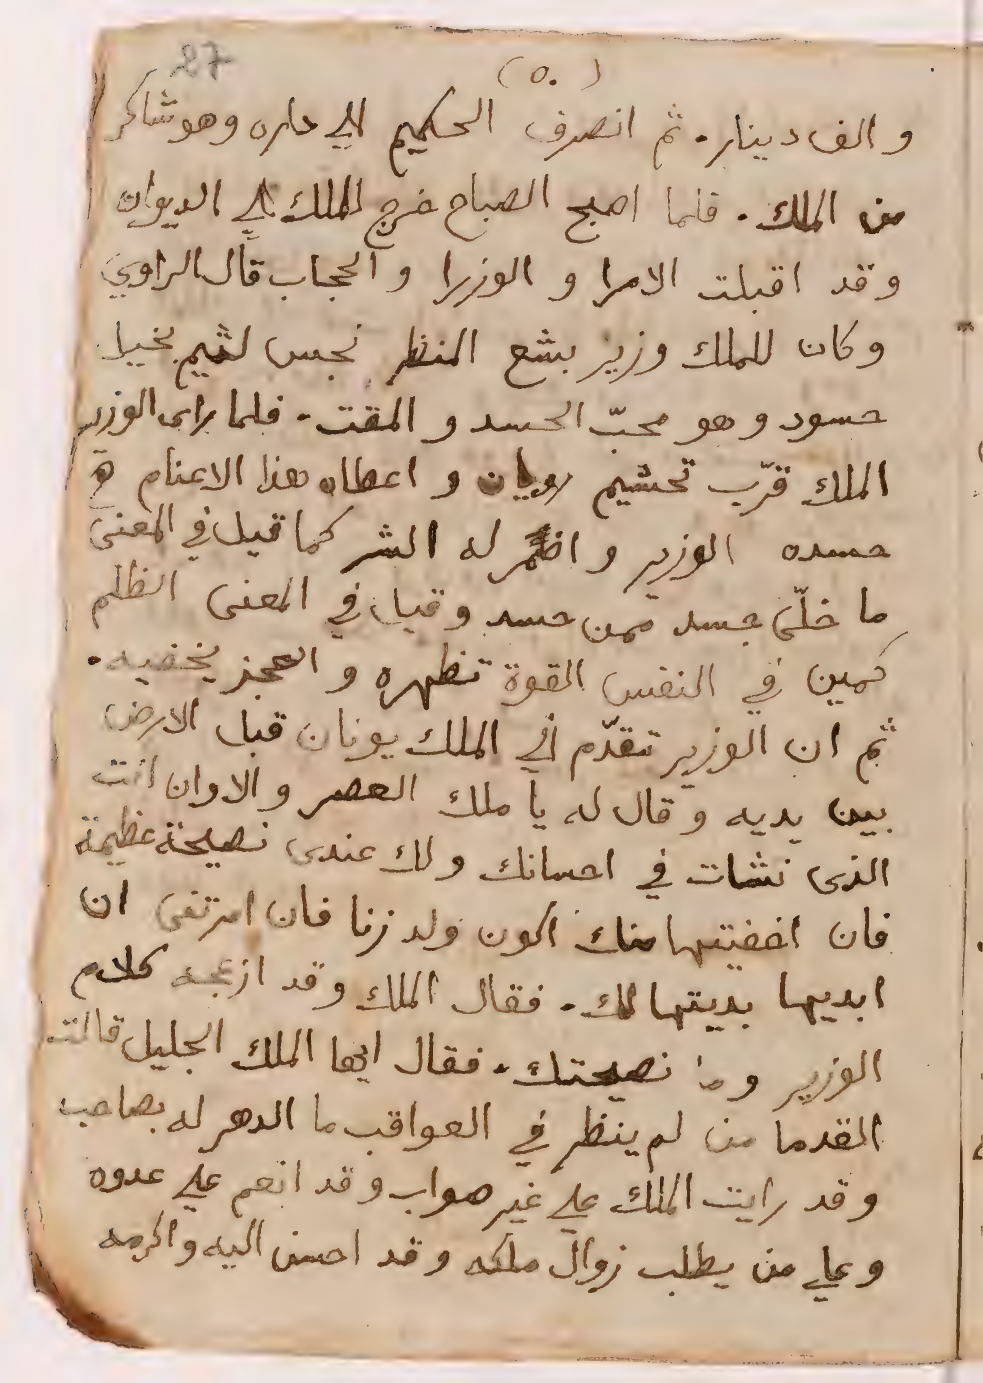 27
(٥٠)
و الف دينار. ثم انصرف الحكيم الي داره وهو شاكر
من الملك. فلما اصبح الصباح خرج الملك الي الديوان
وقد اقبلت الامرا و الوزرا و الحجاب قال الراوي
وكان للملك وزير بشع المنظر نجس لئيم بخيل
حسود و هو محبّ الحسد و المقت. فلما راى الوزير
الملك قرّب تحشيم رويان و اعطاه هذا الاعنام
حسده الوزير و اضمر له الشر كما قيل في المعنى
ما خلّى جسد ممن حسد وقيل في المعنى الظلم
كمين في النفس القوة تظهره و العجز يخفيه.
ثم ان الوزير تقدّم الي الملك يونان قبل الارض
بين يديه وقال له يا ملك العصر و الاوان انت
الذى نشات في احسانك ولك عندى نصيحة عظيمة
فان اخفيتها منك اكون ولد زنا فان امرتنى ان
ابديها بديتها لك. فقال الملك وقد ازعجه كلام
الوزير وما نصيحتك. فقال ايها الملك الجليل قالت
القدما من لم ينظر في العواقب ما الدهر له بصاحب
وقد رايت الملك علي غير صواب وقد انعم علي عدوه
وعلي من يطلب زوال ملكه وقد احسن اليه واكرمه